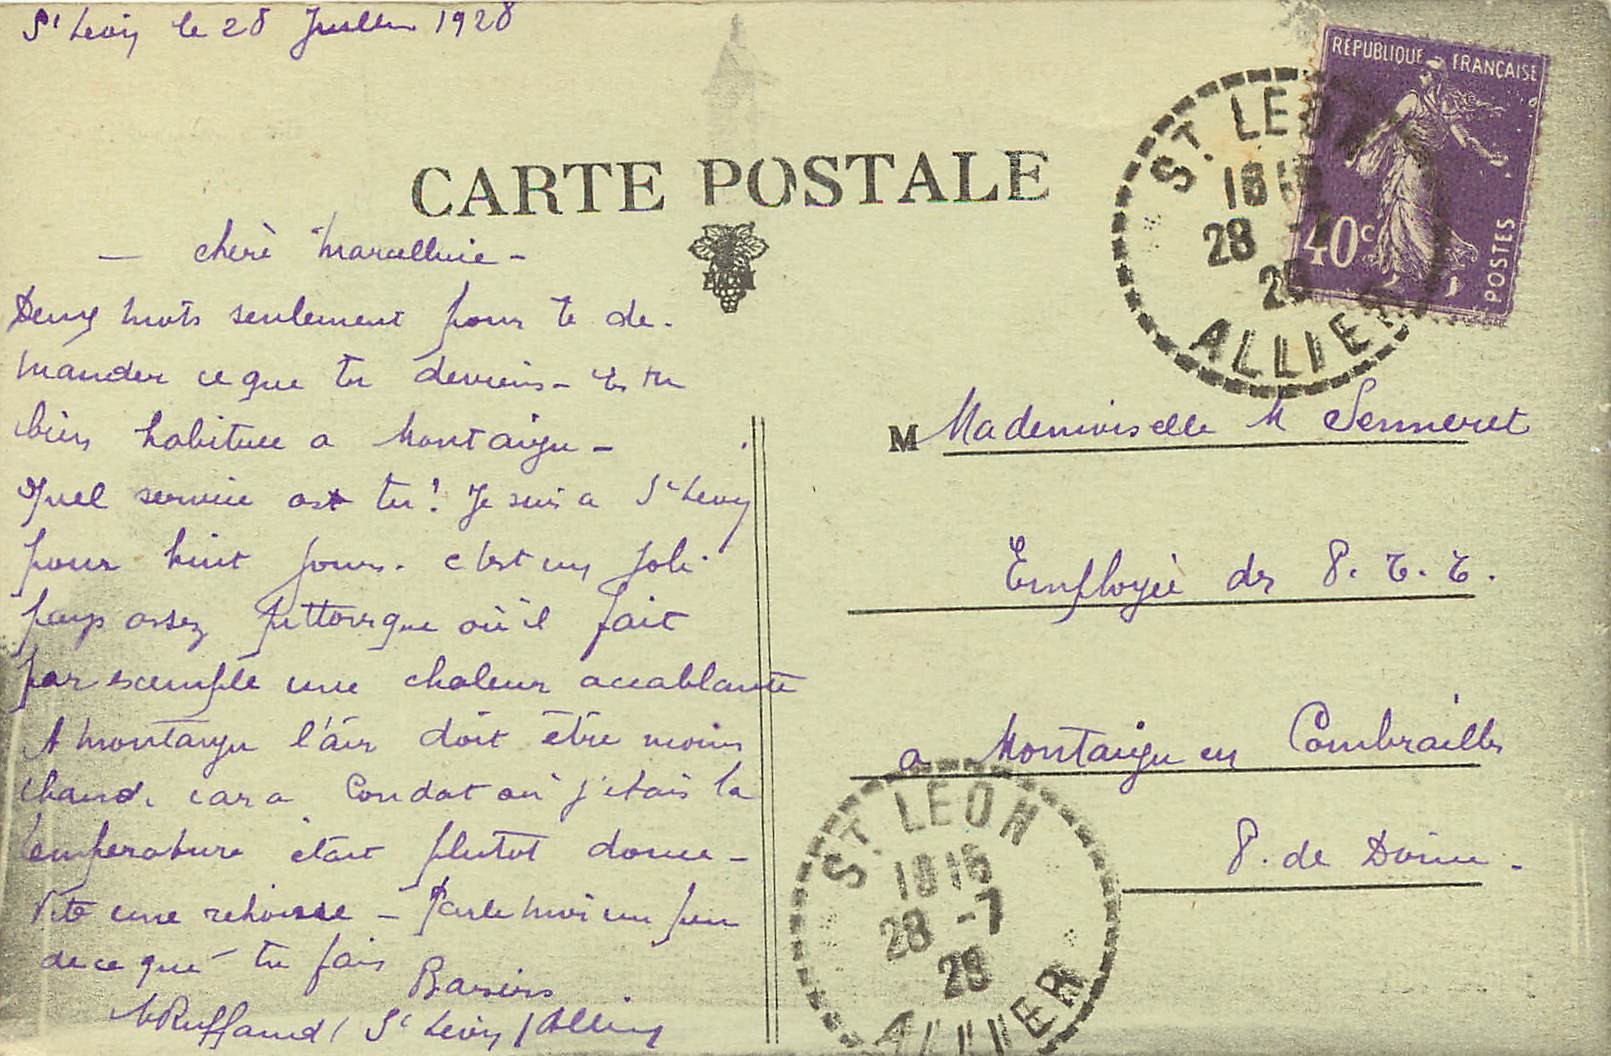 St Léon le 28 Juillet 1928
CARTE POSTALE
REPUBLIQUE FRANÇAISE
40c
POSTES
ST. LEON
18
28 -7
28
ALLIER
- chère Marcelline -
Deux mots seulement pour te de-
mander ce que tu deviens - Es tu
bien habituée a Montaigu -
Quel service as tu! Je suis a St Léon
pour huit jours. c'est un joli
pays assez pittoresque où il fait
par exemple une chaleur accablante
A Montaigu l'air doit être moins
chaud. car a Condat où j'étais la
température était plutot douce -
Vite une réponse - Parle moi un peu
de ce que tu fais
Baisers
St Léon (Allier)
M Mademoiselle M Senneret
Employée des P. T. T.
a Montaigu en Combrailles
P. de Dôme -
ST. LEON
1815
28 -7
28
ALLIER